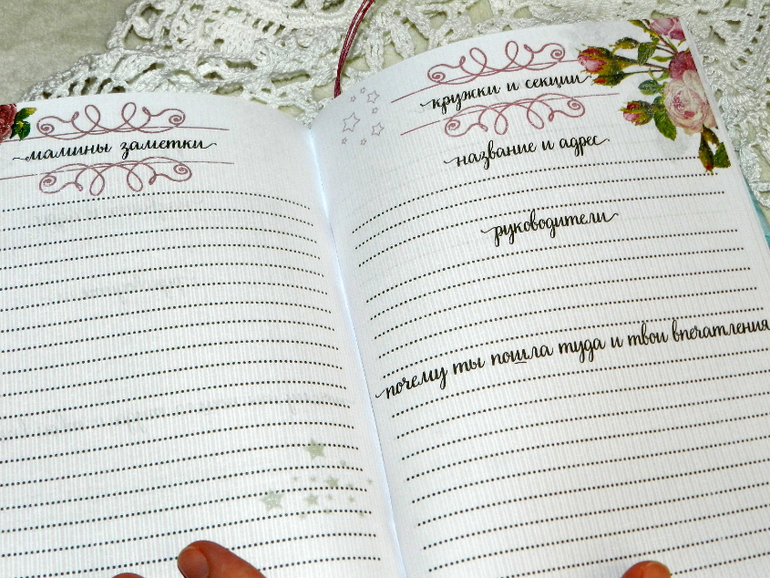 мамины заметки
кружки и секции
название и адрес
руководители
почему ты пошла туда и твои впечатления